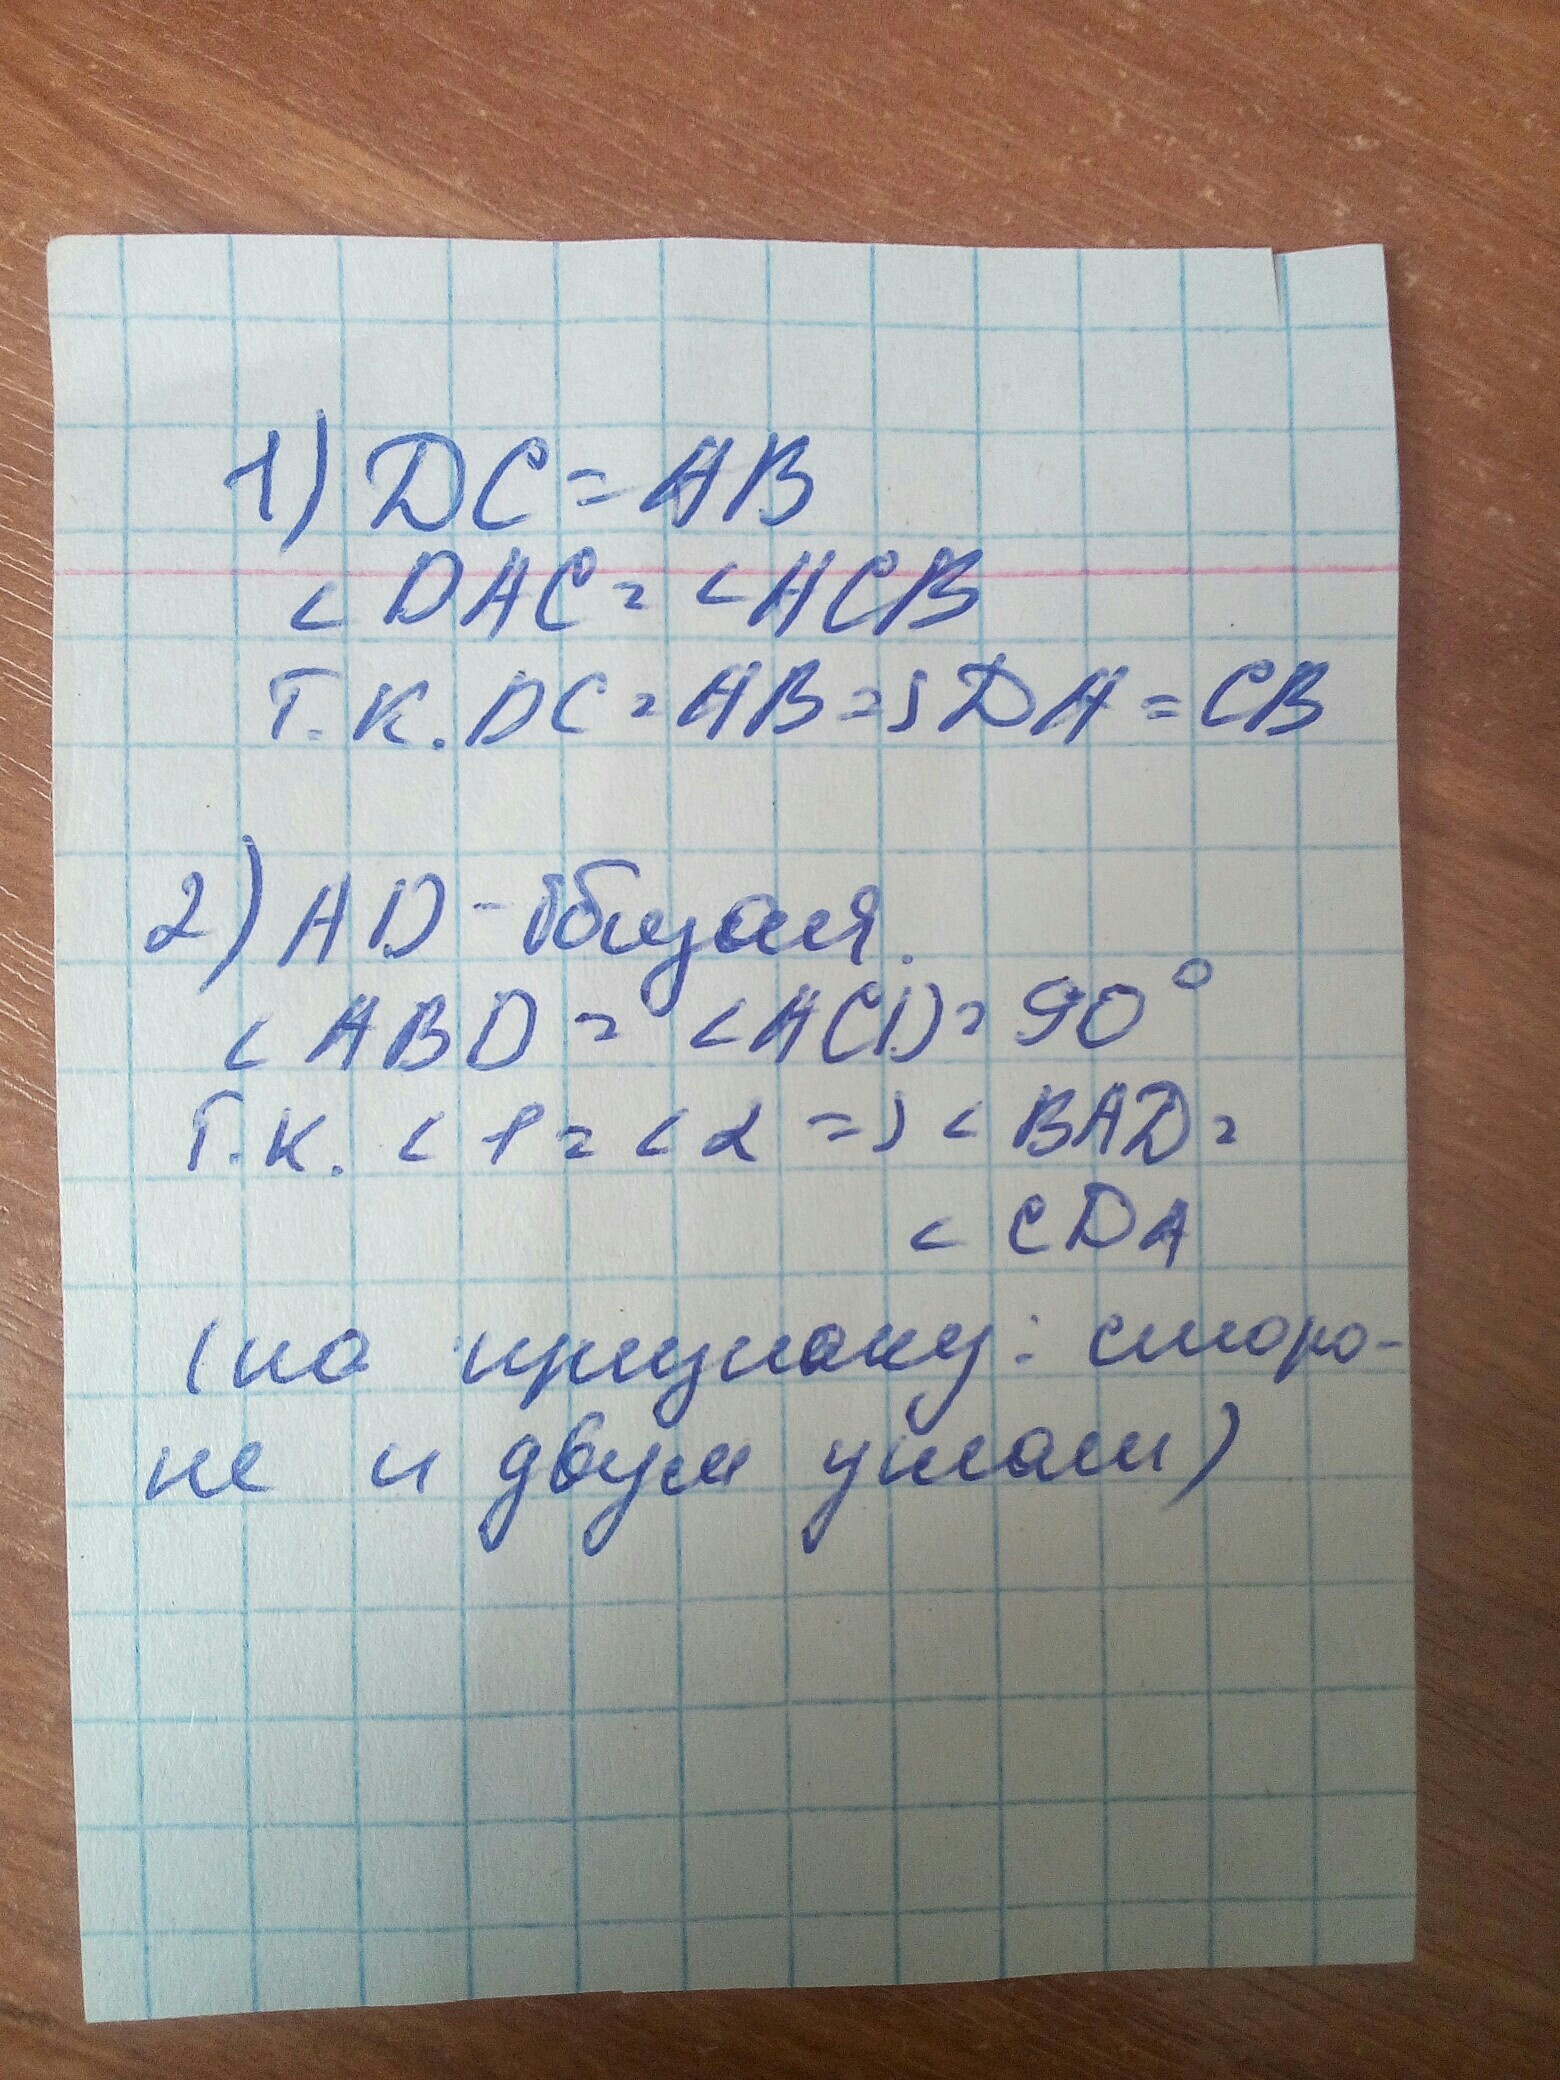 1) DC = AB
< DAC = < ACB
Т.К. DC = AB => DA = CB
2) AD - общая.
< ABD = < ACD = 90°
Т.К. < 1 = < 2 => < BAD =
< CDA
(по признаку: сторо-
не и двум углам)